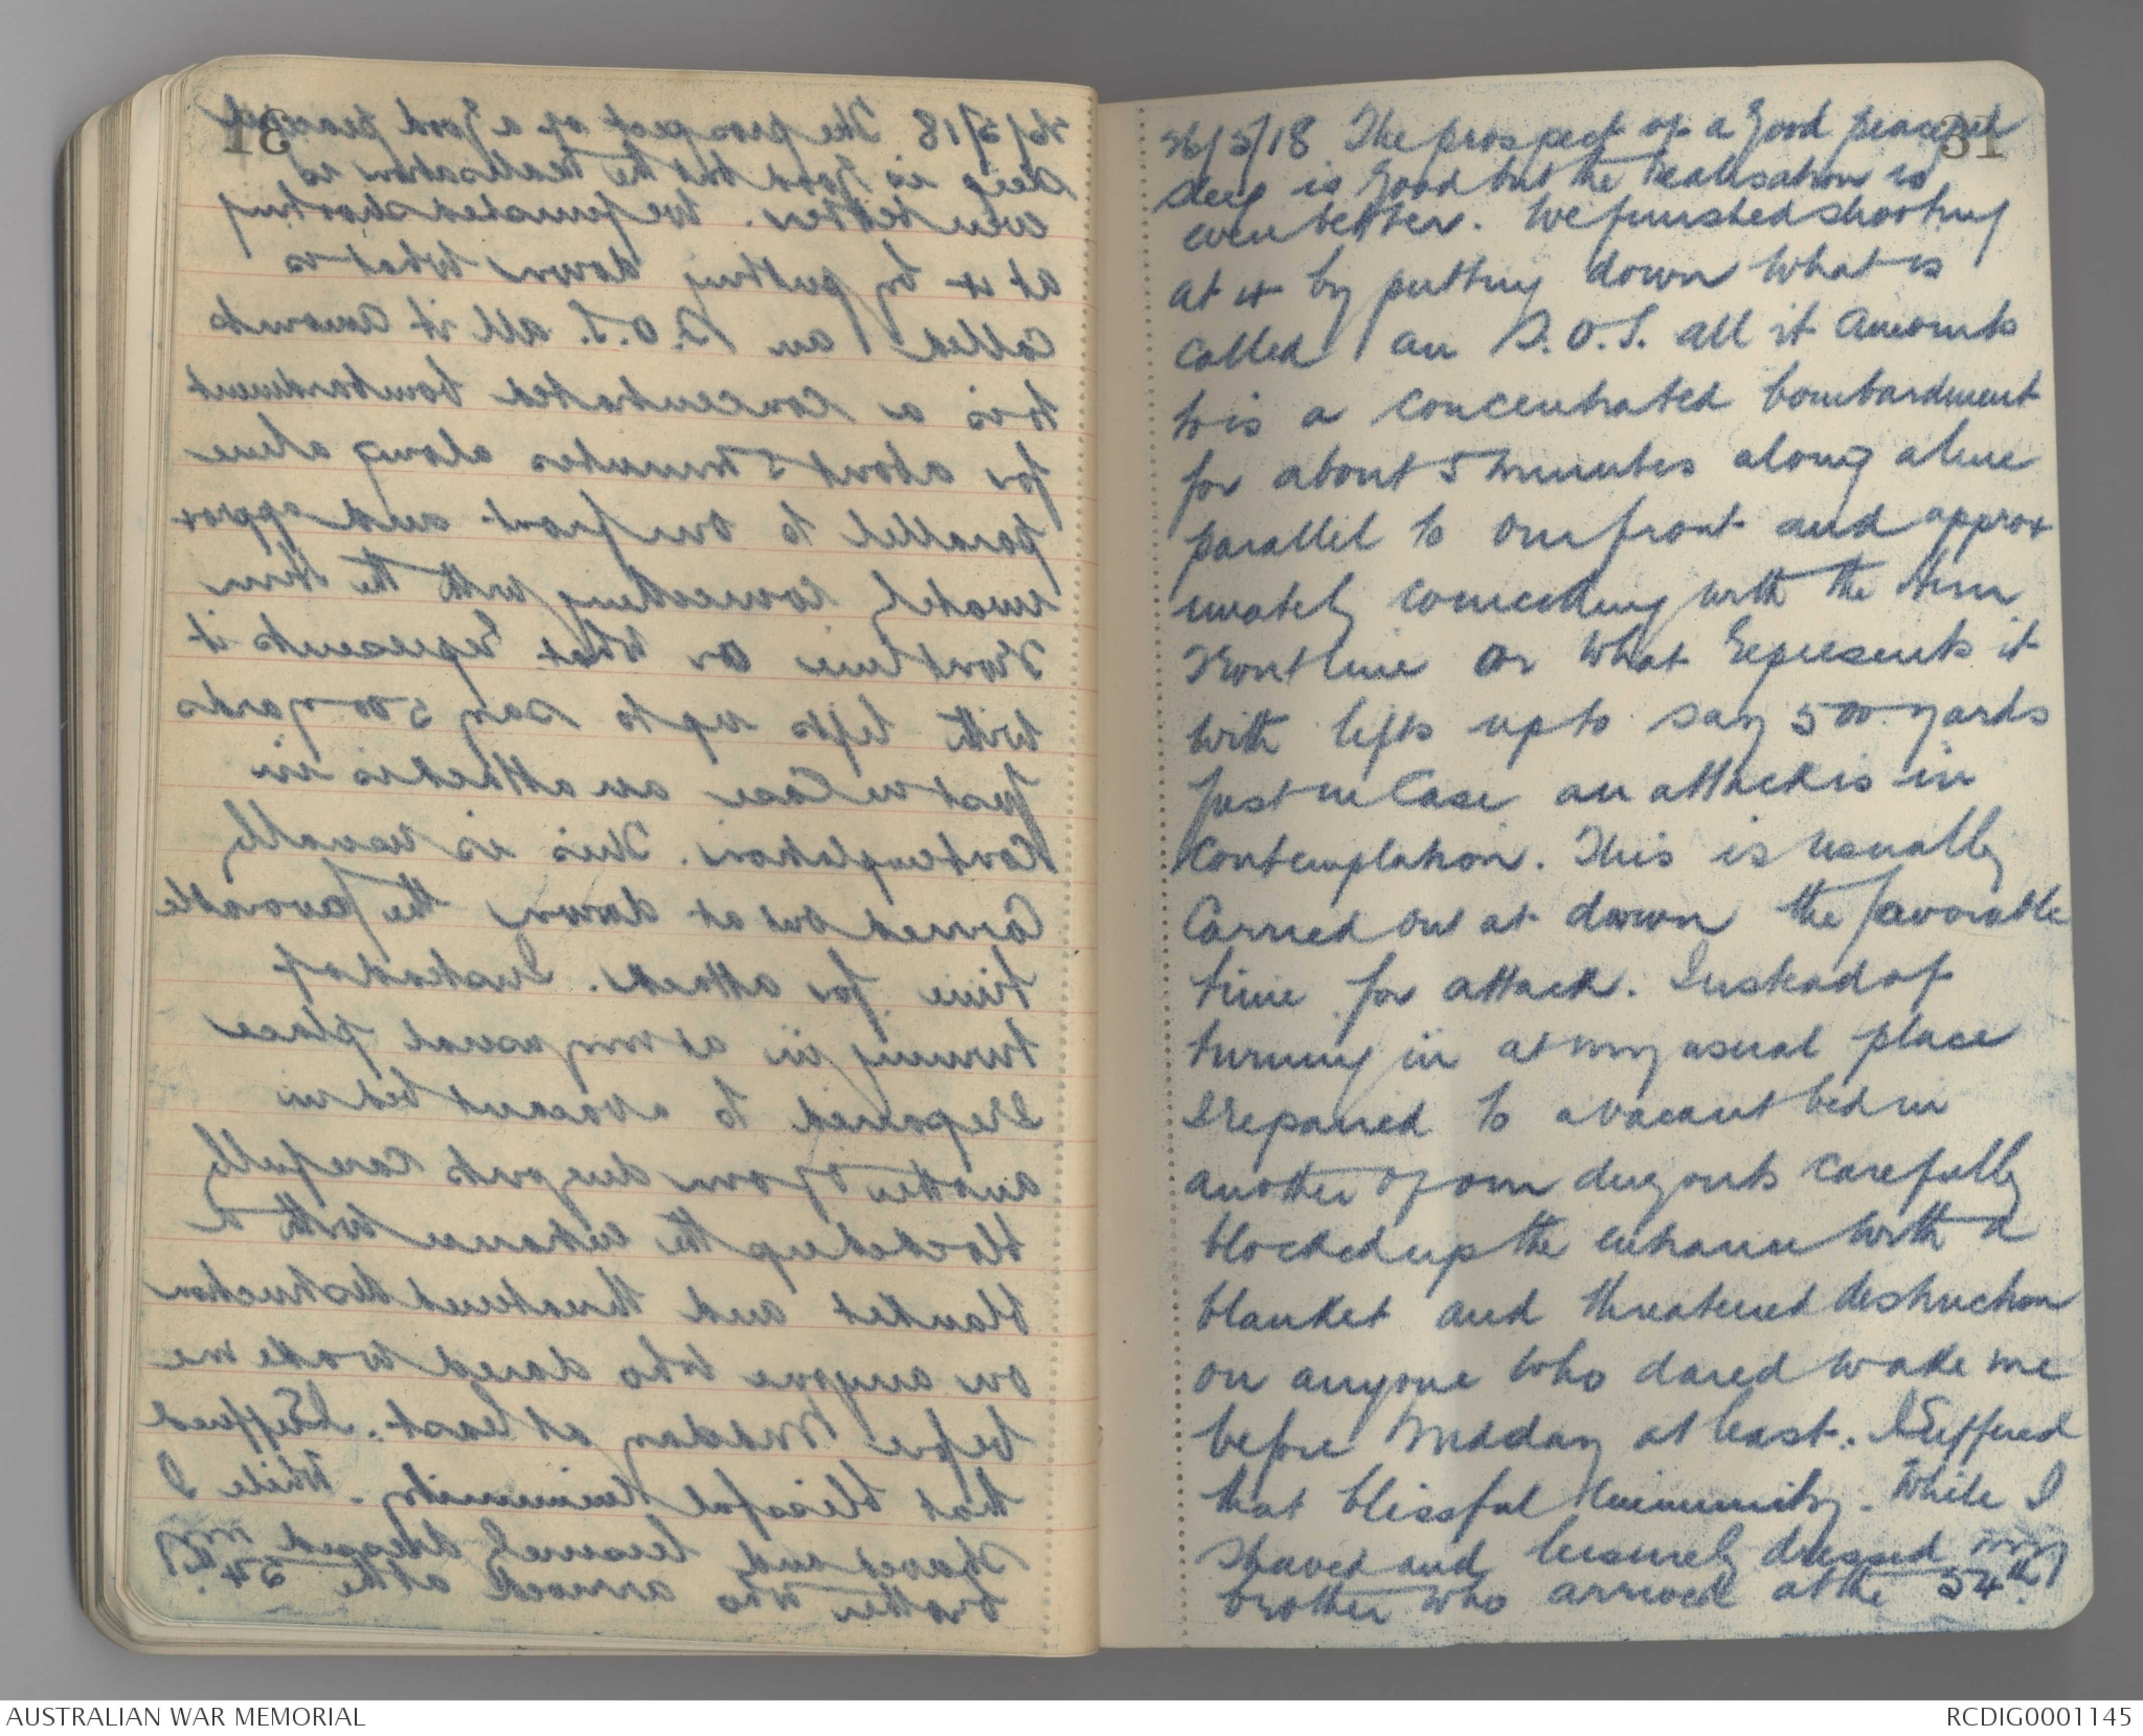 31
26/5/18 The prospect of a good peaceful
sleep is good but the realisation is
even better. We finished shooting
at it by putting down what is
called an S.O.S. all it amounts
to is a concentrated bombardment
for about 5 minutes along a line
parallel to our front and approx
imately connecting with the Hun
Front line or what represents it
with lifts up to say 500 yards
just in case an attack is in
contemplation. This is usually
carried out at dawn the favorable
time for attack. Instead of
turning in at my usual place
I repaired to a vacant bed in
another of our dugouts carefully
blocked up the entrance with a
blanket and threatened destruction
on anyone who dared wake me
before midday at least. I suffered
that blissful immunity. While I
shaved and leisurely dressed my
brother who arrived at the 54th
AUSTRALIAN WAR MEMORIAL
RCDIG0001145